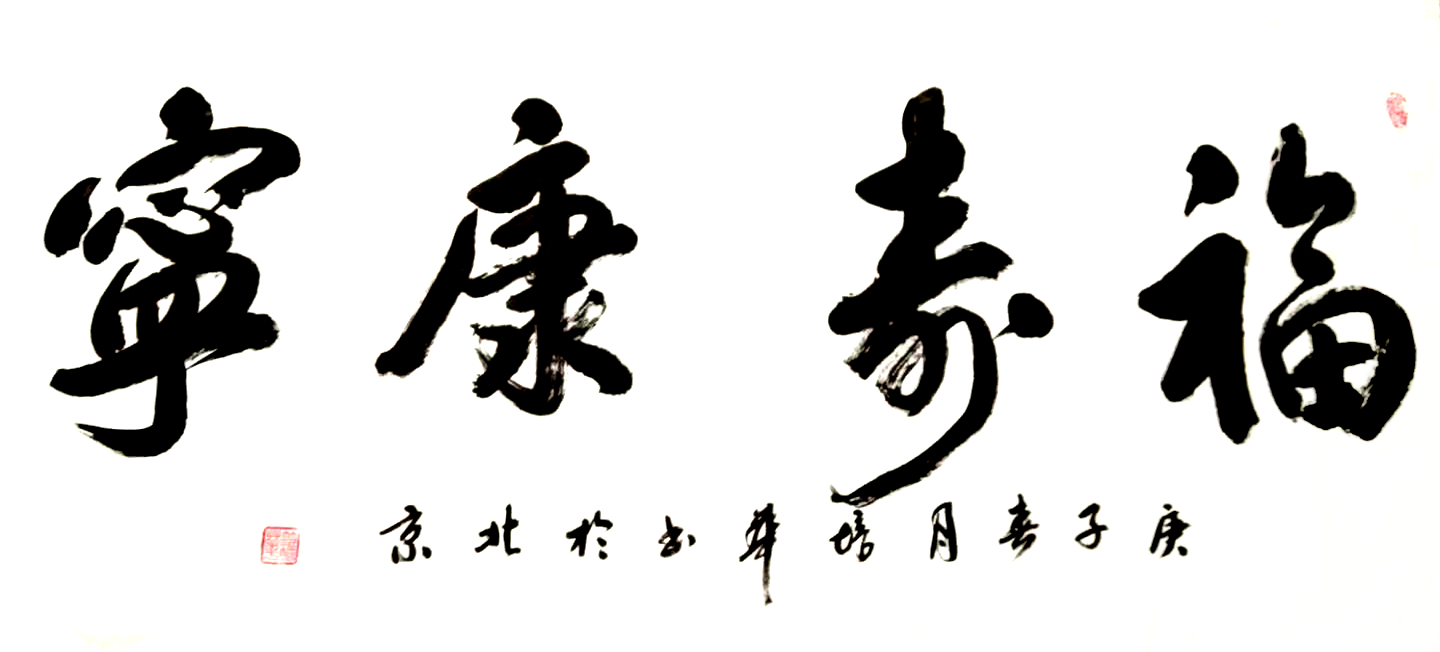 福壽康寧
庚子春月培華书於北京